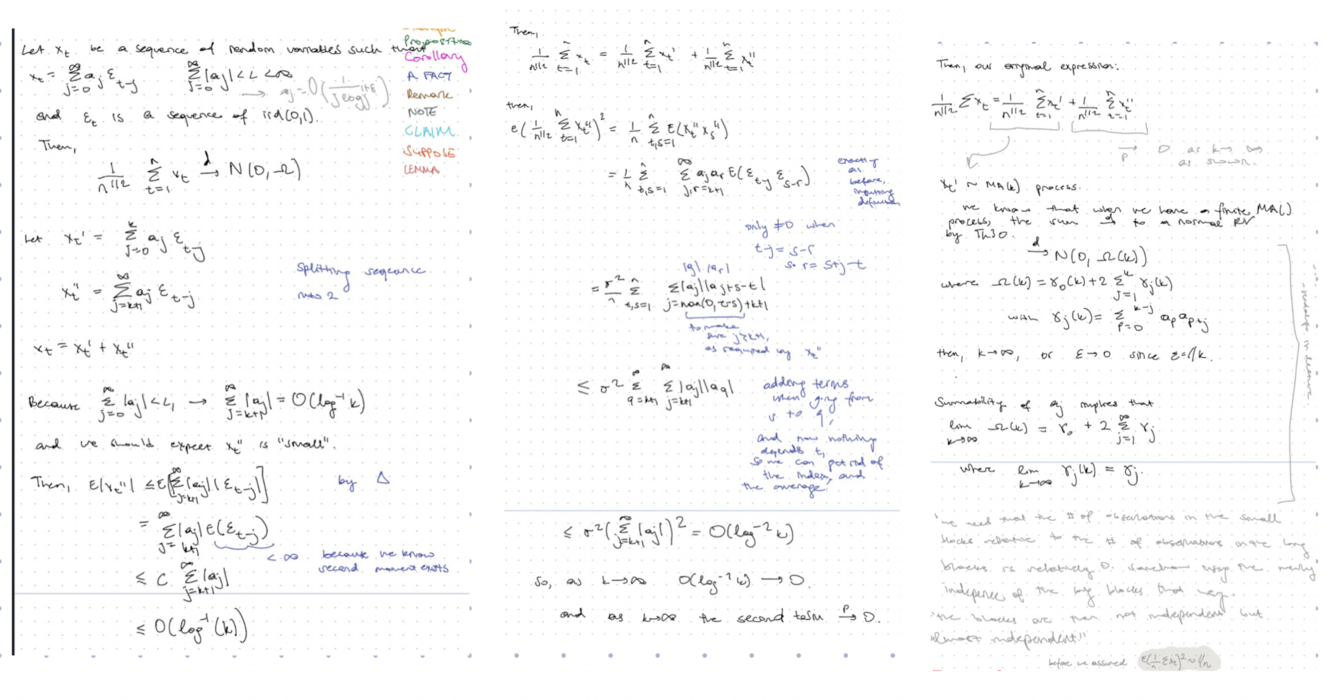 Let xₜ be a sequence of random variables such that
xₜ = Σ_{j=0}^{∞} aⱼ ε_{t-j}    Σ_{j=0}^{∞} |aⱼ| < L < ∞
→ aⱼ = O(1/(j log j^{1+ε}))
and εₜ is a sequence of iid(0,1).
Then,
1/n^{1/2} Σ_{t=1}^{n} xₜ →d N(0, Ω)
Proposition
Corollary
A FACT
Remark
NOTE
CLAIM
SUPPOSE
LEMMA
Let xₜ' = Σ_{j=0}^{k} aⱼ ε_{t-j}
xₜ'' = Σ_{j=k+1}^{∞} aⱼ ε_{t-j}
Splitting sequence
into 2
xₜ = xₜ' + xₜ''
Because Σ_{j=0}^{∞} |aⱼ| < L, → Σ_{j=k+1}^{∞} |aⱼ| = O(log⁻¹ k)
and we should expect xₜ'' is "small".
Then, E|xₜ''| ≤ E[Σ_{j=k+1}^{∞} |aⱼ| |ε_{t-j}|]    by Δ
= Σ_{j=k+1}^{∞} |aⱼ| E(ε_{t-j})
< ∞ because we know
second moment exists
≤ C Σ_{j=k+1}^{∞} |aⱼ|
≤ O(log⁻¹(k))
Then,
1/n^{1/2} Σ_{t=1}^{n} xₜ = 1/n^{1/2} Σ_{t=1}^{n} xₜ' + 1/n^{1/2} Σ_{t=1}^{n} xₜ''
then,
E(1/n^{1/2} Σ_{t=1}^{n} xₜ'')² = 1/n Σ_{t,s=1}^{n} E(xₜ'' xₛ'')
= 1/n Σ_{t,s=1}^{n} Σ_{j,r=k+1}^{∞} aⱼ aᵣ E(ε_{t-j} ε_{s-r})
exactly
as
before,
inputting
definition
only ≠0 when
t-j = s-r
so r = s+j-t
|aⱼ| |aᵣ|
= σ²/n Σ_{t,s=1}^{n} Σ_{j=max(0,t-s)+k+1} |aⱼ| |a_{j+s-t}|
to make
sure j≥k+1,
as required by xₜ''
≤ σ² Σ_{q=k+1}^{∞} Σ_{j=k+1}^{∞} |aⱼ| |a_q|
adding terms
when going from
s to q,
and now nothing
depends t,
so we can get rid of
the index, and
the average
≤ σ² (Σ_{j=k+1}^{∞} |aⱼ|)² = O(log⁻² k)
so, as k→∞ O(log⁻¹ k) → 0.
and as k→∞ the second term →p 0.
Then, our original expression:
1/n^{1/2} Σ xₜ = 1/n^{1/2} Σ_{t=1}^{n} xₜ' + 1/n^{1/2} Σ_{t=1}^{n} xₜ''
→p 0 as k→∞
as shown.
xₜ' ~ MA(k) process.
we know that when we have a finite MA()
process, the sum →d to a normal RV
by Th30.
→d N(0, Ω(k))
where Ω(k) = γ₀(k) + 2 Σ_{j=1}^{k} γⱼ(k)
with γⱼ(k) = Σ_{p=0}^{k-j} a_p a_{p+j}
then, k→∞, or ε→0 since ε=1/k.
Summability of aⱼ implies that
lim_{k→∞} Ω(k) = γ₀ + 2 Σ_{j=1}^{∞} γⱼ
where lim_{k→∞} γⱼ(k) = γⱼ.
"we need that the # of observations in the small
blocks relative to the # of observations in the big
blocks is relatively 0. somehow the nearly
indepence of the big blocks that way.
"the blocks are then not independent but
almost independent"
before we assumed E(1/n Σxₜ)² ~ 1/n